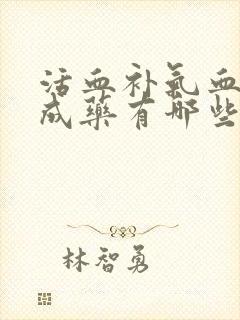 活血补氣血
成藥有哪些
林智勇